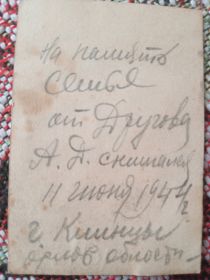 На память
семья
от Другова
А. Д. снимался
11 июня 1944
г. Клинцы
орлов. области